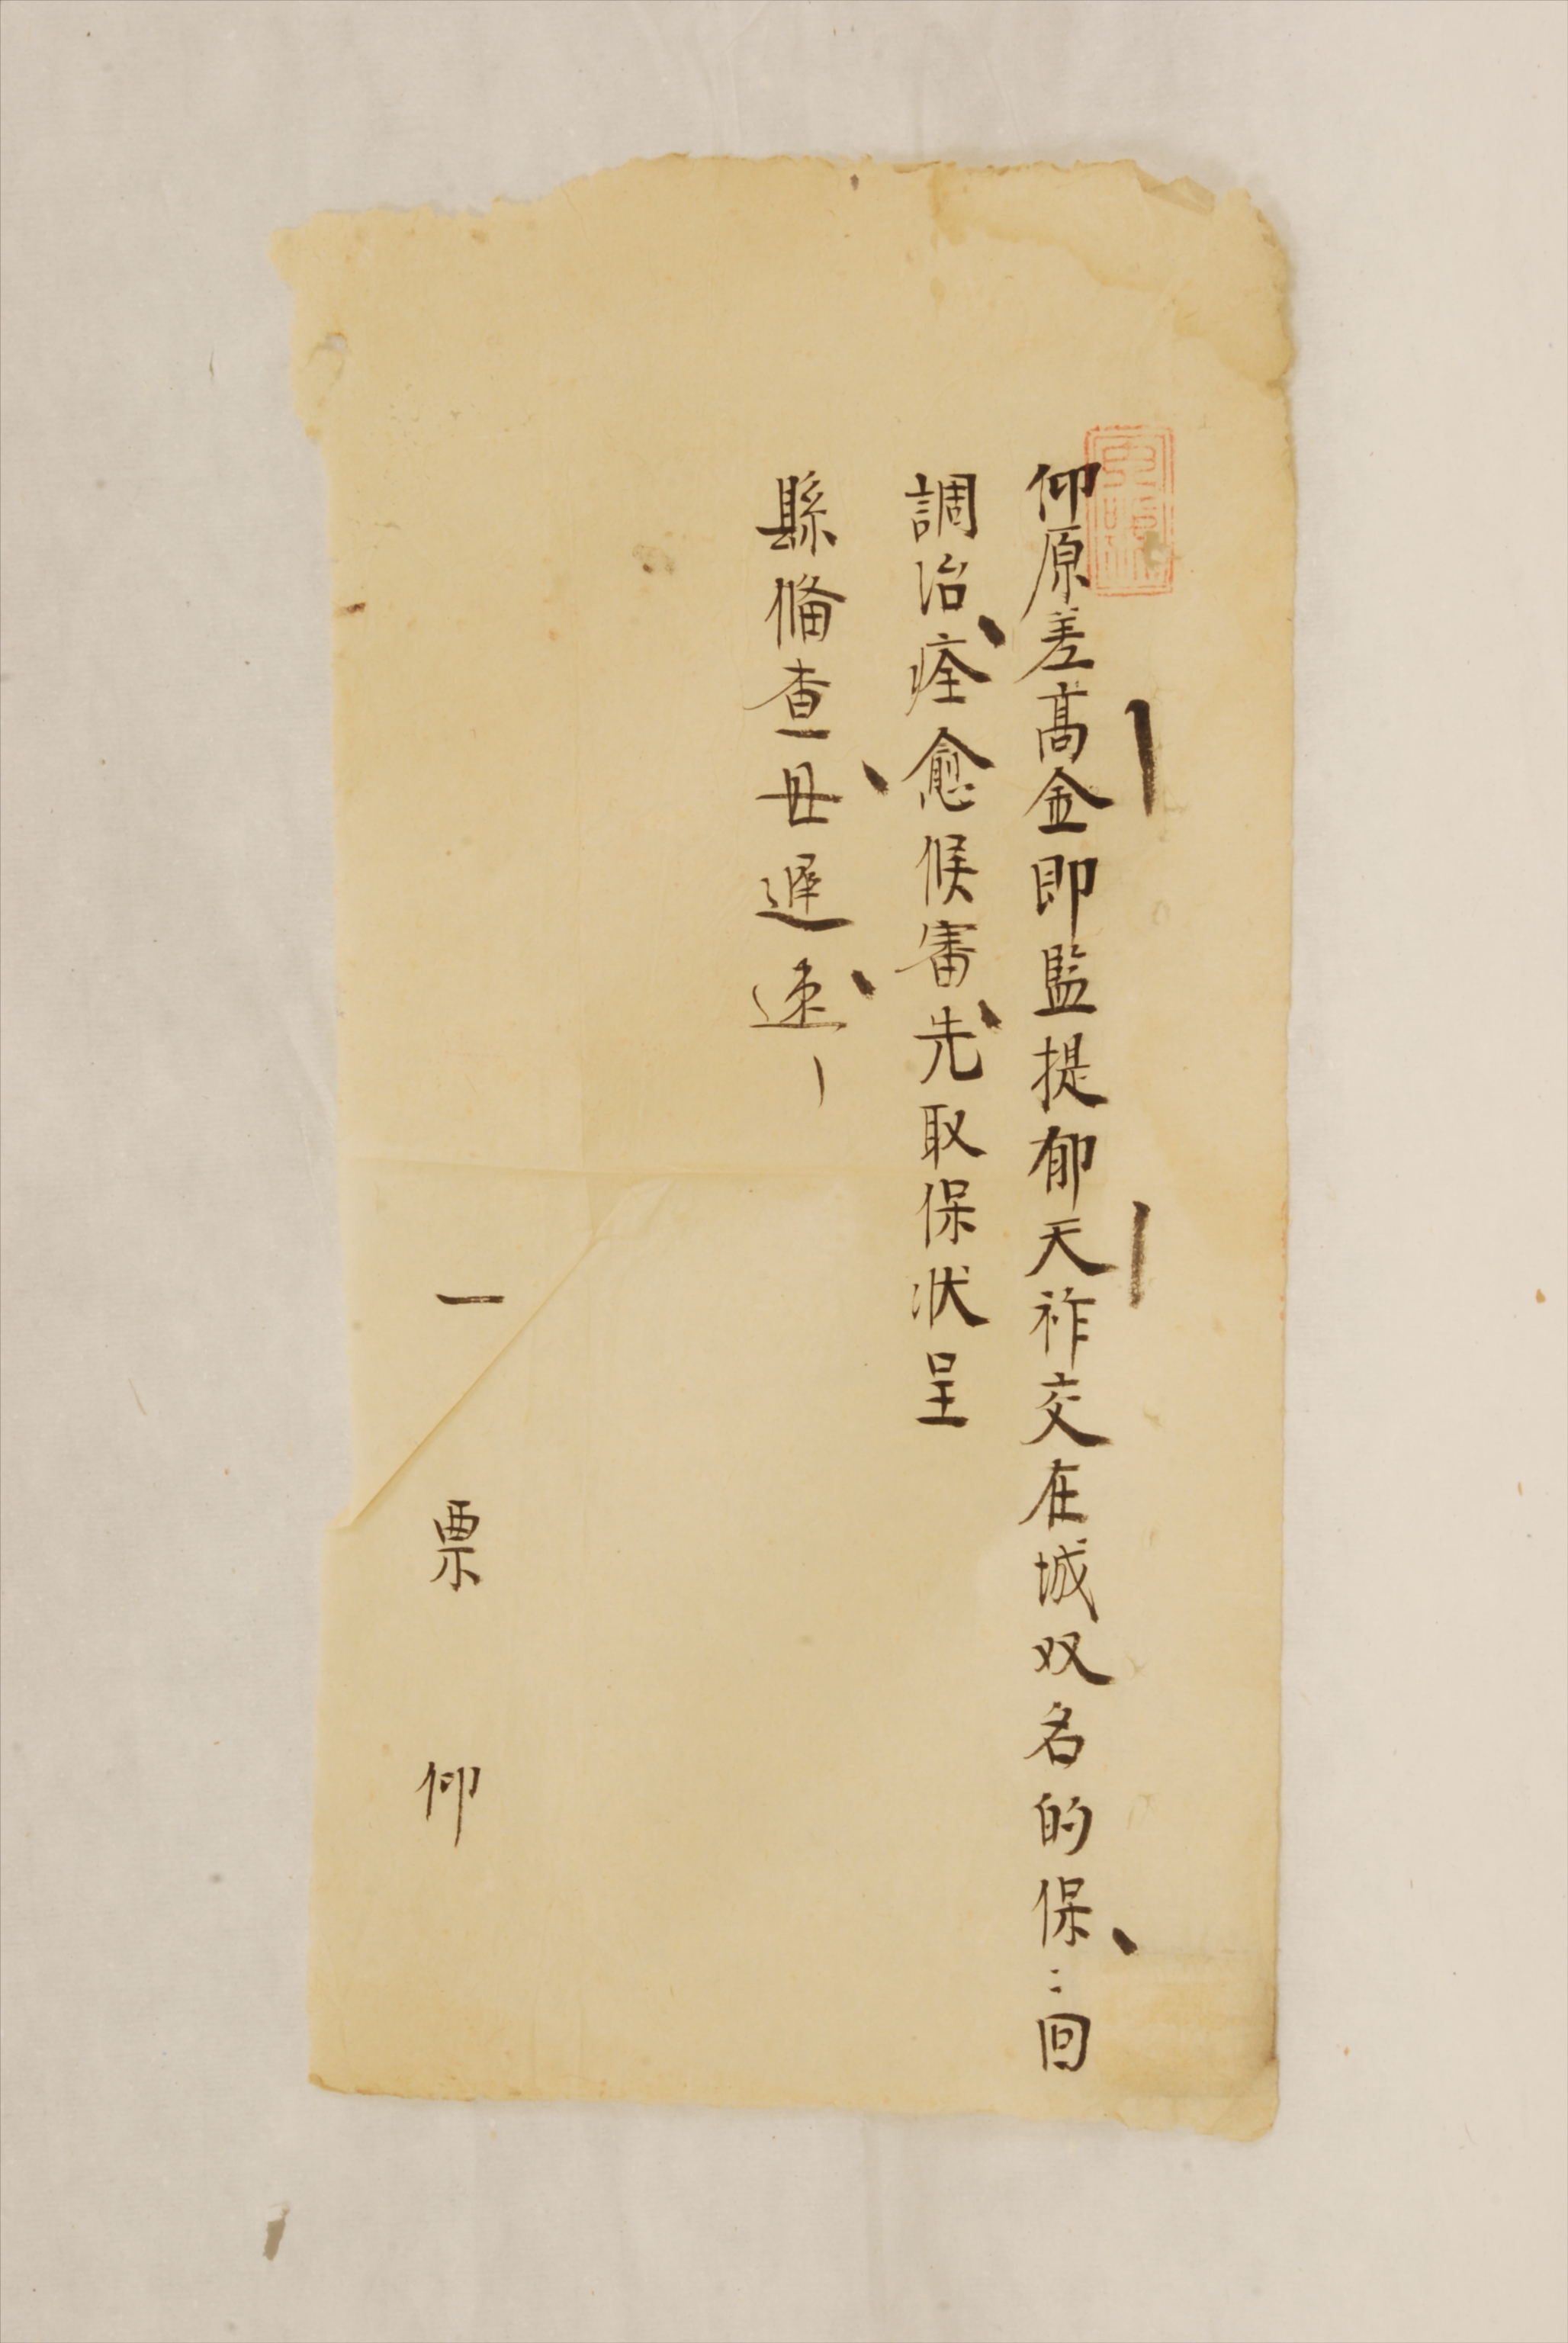 仰原差高金即監提郁天祚交在城双名的保〻回
調治痊愈候審先取保状呈
縣偹查毋遲速
一票仰